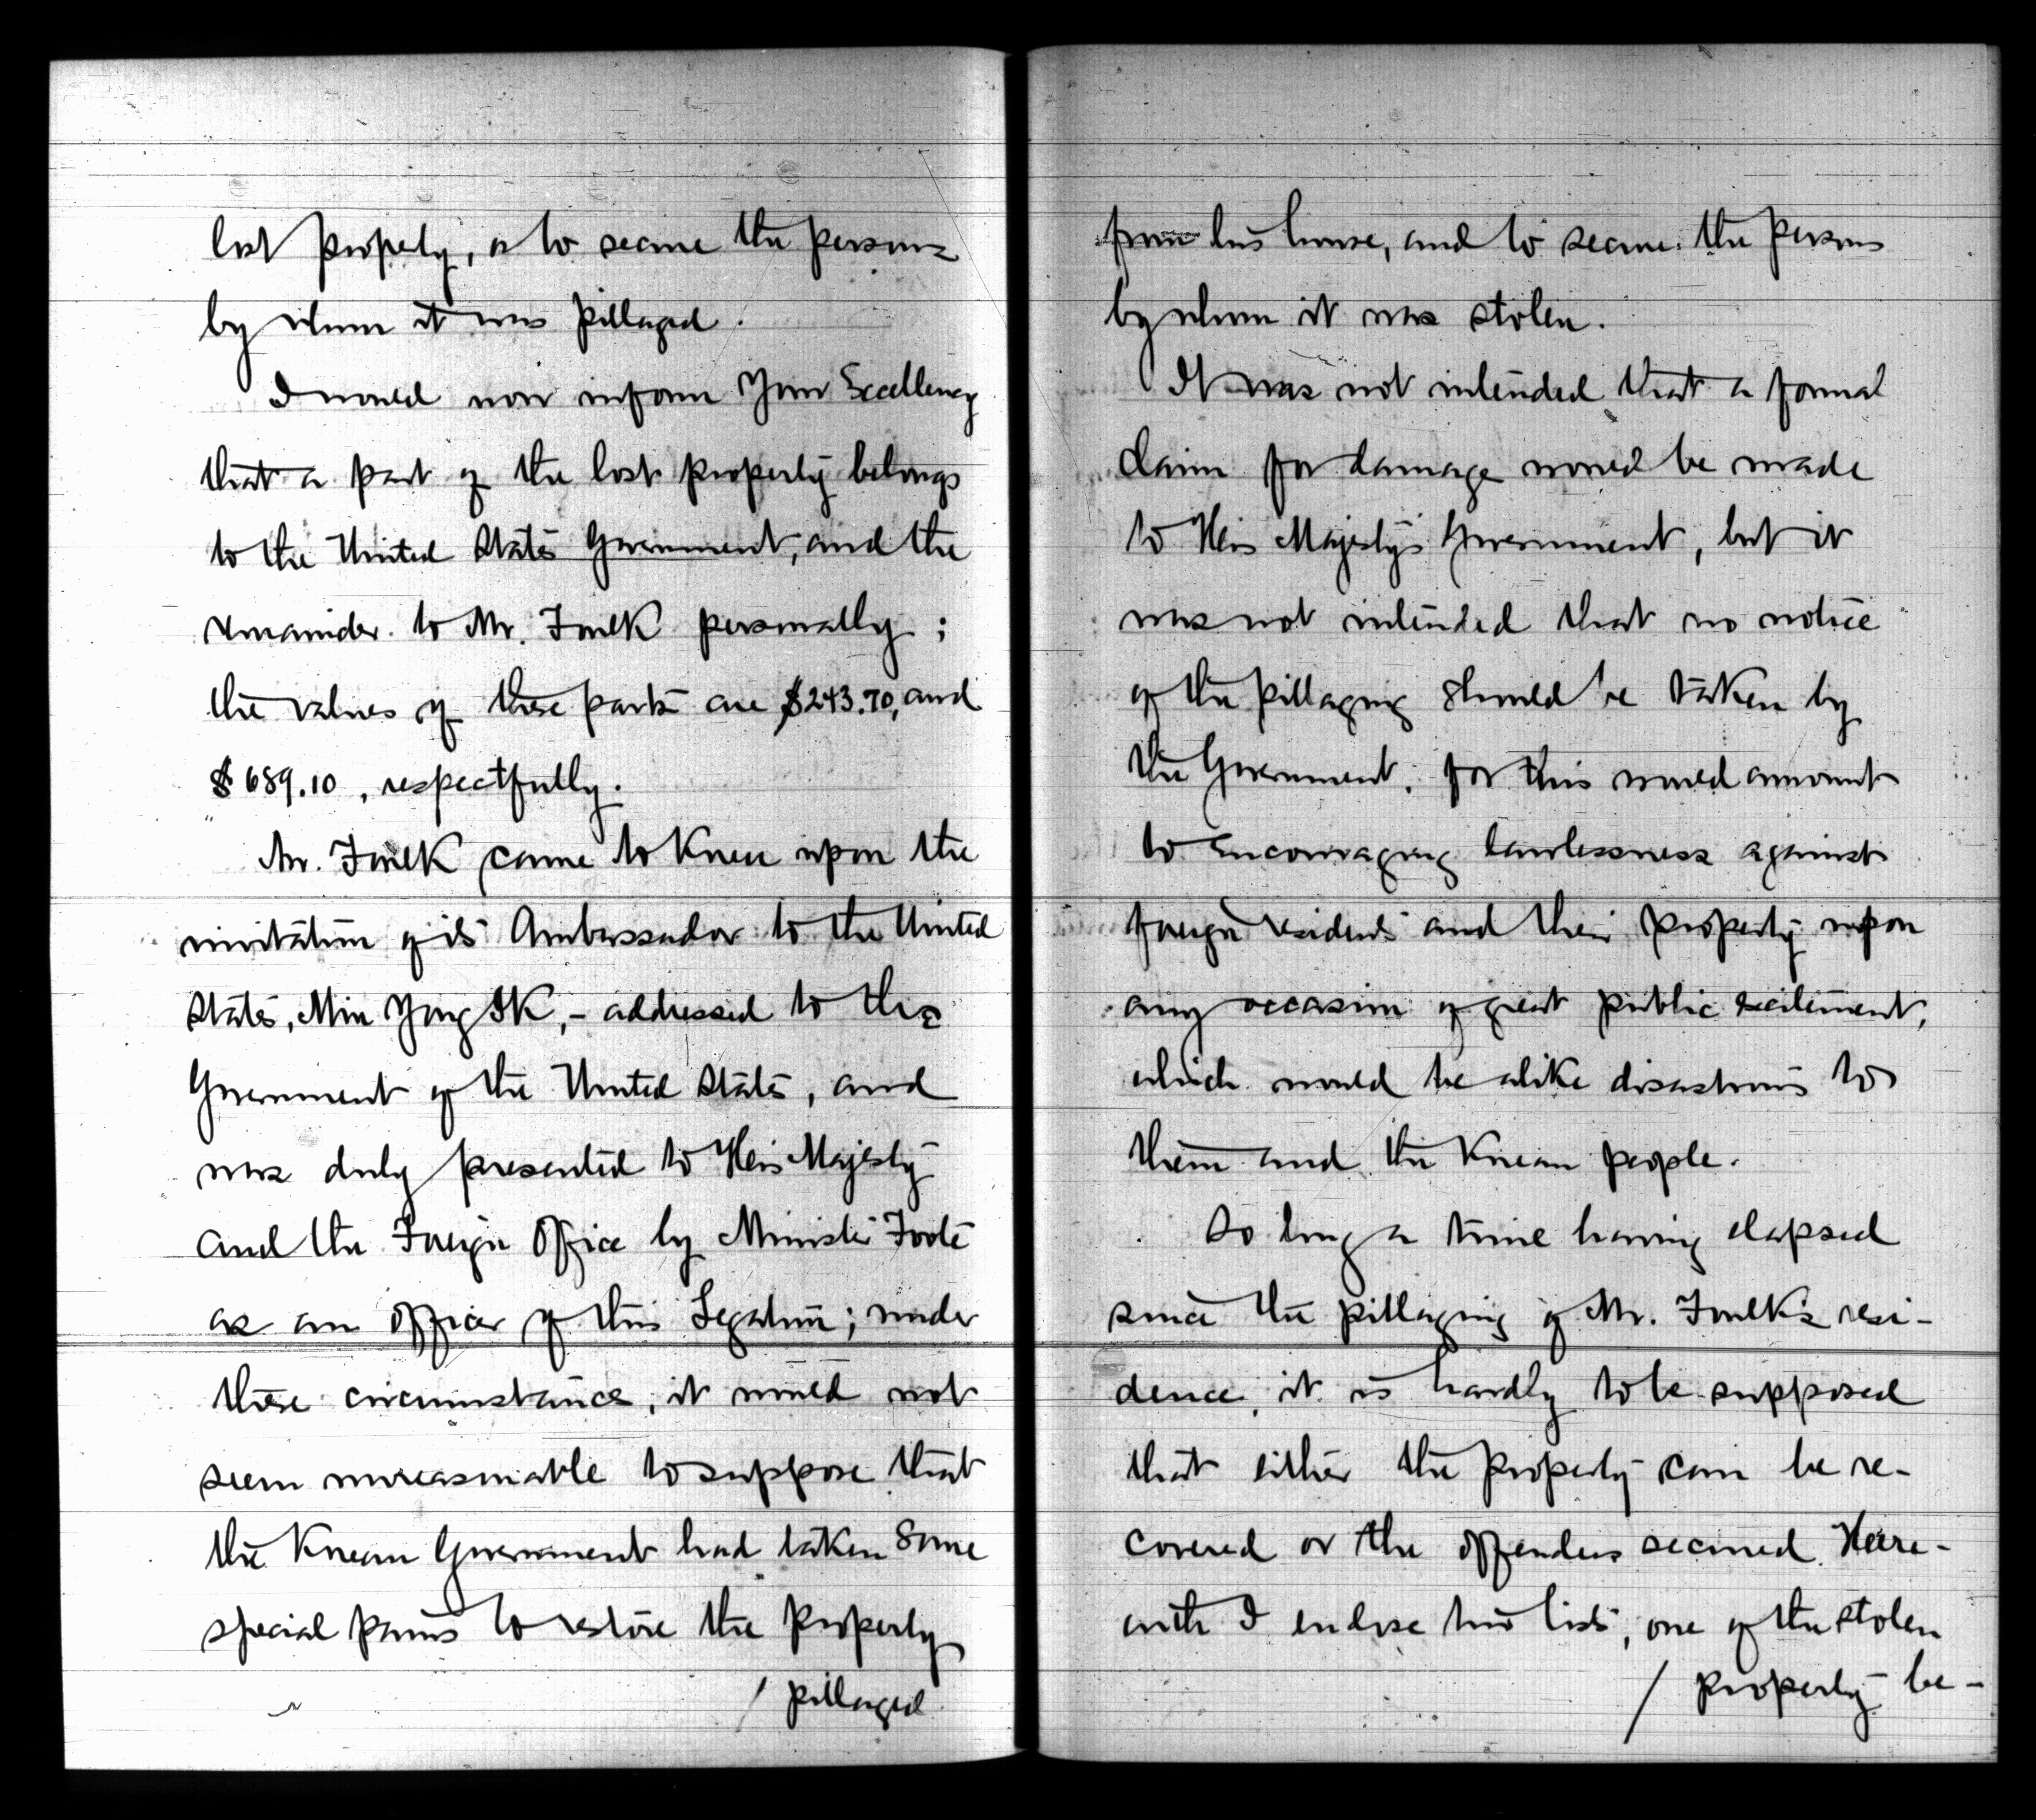 lost property, or to secure the persons
by whom it was pillaged.
I would now inform Your Excellency
that a part of the lost property belongs
to the United States Government, and the
remainder to Mr. Foulk personally;
the values of these parts are $243.70, and
$689.10, respectfully.
Mr. Foulk came to Korea upon the
invitation of its Ambassador to the United
States, Min Yong Ik, - addressed to the
Government of the United States, and
was duly presented to His Majesty
and the Foreign Office by Minister Foote
as an officer of this Legation; under
these circumstances, it would not
seem unreasonable to suppose that
the Korean Government had taken some
special pains to restore the property
/ pillaged
from his house, and to secure the persons
by whom it was stolen.
It was not intended that a formal
claim for damage would be made
to His Majesty's Government, but it
was not intended that no notice
of the pillaging should be taken by
the Government, for this would amount
to encouraging lawlessness against
foreign residents and their property upon
any occasion of great public excitement,
which would be alike disastrous to
them and the Korean people.
So long a time having elapsed
since the pillaging of Mr. Foulk's resi-
dence, it is hardly to be supposed
that either the property can be re-
covered or the offenders secured. Here-
with I enclose two lists, one of the stolen
/ property be-